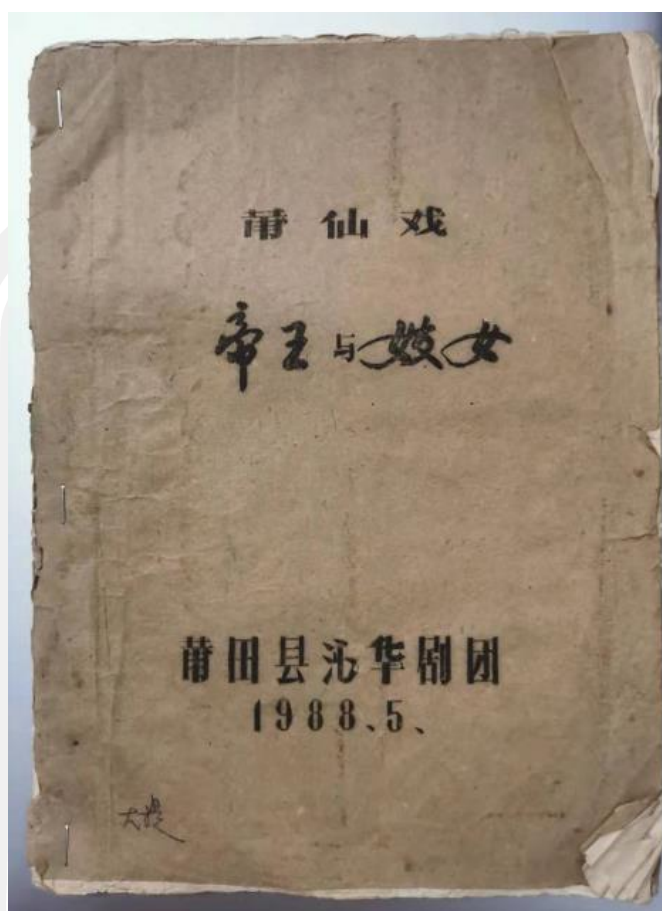 莆仙戏
帝王与妓女
莆田县沁华剧团
1988、5、
大提